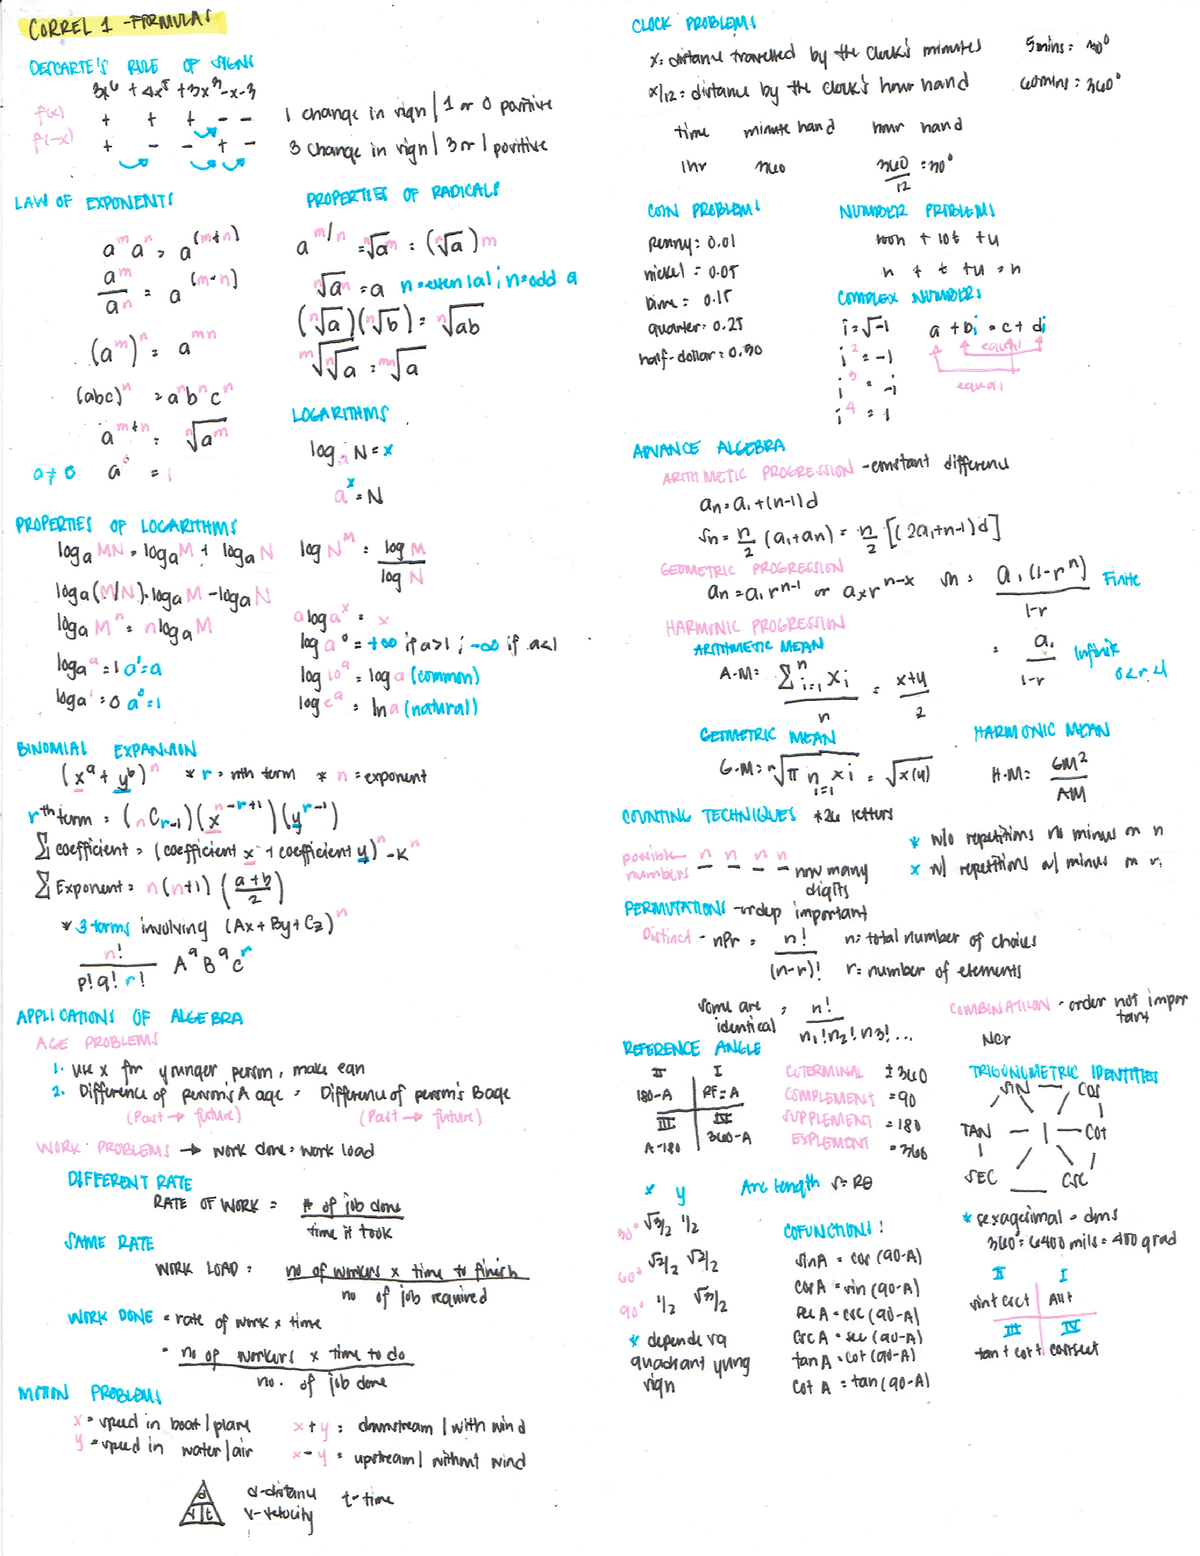 CORREL 1 - FORMULAS
DESCARTE'S RULE OF SIGNS
3x⁶ + 4x⁵ + 3x³ - x - 3
f(x) + + + - - 1 change in sign | 1 or 0 positive
f(-x) + - - + - 3 change in sign | 3 or 1 positive
LAW OF EXPONENTS
aᵐaⁿ = a^(m+n)
aᵐ/aⁿ = a^(m-n)
(aᵐ)ⁿ = a^mn
(abc)ⁿ = aⁿbⁿcⁿ
a^m+n = ⁿ√aᵐ
a ≠ 0 a⁰ = 1
PROPERTIES OF RADICALS
a^m/n = ⁿ√aᵐ = (ⁿ√a)ᵐ
ⁿ√aⁿ = a n=even |a| ; n=odd a
(ⁿ√a)(ⁿ√b) = ⁿ√ab
ᵐ√ⁿ√a = ᵐⁿ√a
LOGARITHMS
logₐ N = x
aˣ = N
PROPERTIES OF LOGARITHMS
logₐ MN = logₐ M + logₐ N
logₐ (M/N) = logₐ M - logₐ N
logₐ Mⁿ = n logₐ M
logₐ a = 1 a¹ = a
logₐ 1 = 0 a⁰ = 1
log N^M = log M / log N
a logₐ x = x
logₐ 0 = +∞ if a>1 ; -∞ if a<1
log 10 a = log a (common)
log e a = ln a (natural)
BINOMIAL EXPANSION
(xᵃ + yᵇ)ⁿ * r = nth term * n = exponent
rth term = (nCr-1)(x^n-r+1)(y^r-1)
∑ coefficient = (coefficient x + coefficient y)ⁿ - kⁿ
∑ Exponent = n(n+1) (a+b / 2)
* 3 terms involving (Ax + By + Cz)ⁿ
n! / p!q!r! A^q B^q C^r
APPLICATIONS OF ALGEBRA
AGE PROBLEMS
1. use x for younger person, make eqn
2. Difference of person's A age = Difference of person's B age
(Past → future) (Past → future)
WORK PROBLEMS → work done = work load
DIFFERENT RATE
RATE OF WORK = # of job done / time it took
SAME RATE
WORK LOAD = no of workers x time to finish / no of job required
WORK DONE = rate of work x time
= no of workers x time to do / no. of job done
MOTION PROBLEMS
x = speed in boat | plane x + y = downstream | with wind
y = speed in water | air x - y = upstream | without wind
d
v t
d-distance t-time
v-velocity
CLOCK PROBLEMS
x = distance travelled by the clock's minutes 5mins = 30°
x/12 = distance by the clock's hour hand 60mins = 360°
time minute hand hour hand
1hr 360 360/12 = 30°
COIN PROBLEMS
penny = 0.01
nickel = 0.05
dime = 0.15
quarter = 0.25
half-dollar = 0.50
NUMBER PROBLEMS
100h + 10t + u
h + t + u = n
COMPLEX NUMBERS
i = √-1 a + bi = c + di
i² = -1 equal
i³ = -i equal
i⁴ = 1
ADVANCE ALGEBRA
ARITHMETIC PROGRESSION - constant difference
an = a₁ + (n-1)d
Sn = n/2 (a₁ + an) = n/2 [(2a₁ + n-1)d]
GEOMETRIC PROGRESSION
an = a₁r^n-1 or axr^n-x Sn = a₁(1-rⁿ) / 1-r Finite
= a₁ / 1-r Infinite
0<r<1
HARMONIC PROGRESSION
ARITHMETIC MEAN
A.M = ∑ⁿ i=1 xi / n = x+y / 2
GEOMETRIC MEAN
G.M = ⁿ√π n i=1 xi = √x(y)
HARMONIC MEAN
H.M = GM² / AM
COUNTING TECHNIQUES *26 letters
possible numbers n n n n how many digits
* w/o repetitions no minus on n
x w/ repetitions w/ minus on r
PERMUTATIONS - order important
Distinct - nPr = n! / (n-r)! n = total number of choices
r = number of elements
some are identical = n! / n₁!n₂!n₃!...
COMBINATION - order not important
NCr
REFERENCE ANGLE
II I
180-A RF=A
III IV
A-180 360-A
COTERMINAL ± 360
COMPLEMENT = 90
SUPPLEMENT = 180
EXPLEMENT = 360
Arc length S = RΘ
TRIGONOMETRIC IDENTITIES
SIN COS
TAN 1 COT
SEC CSC
* sexagesimal = dms
360° = 6400 mils = 400 grad
x y
30° √3/2 1/2
60° √2/2 √2/2
90° 1/2 √3/2
* depende sa
quadrant yung
sign
COFUNCTIONS!
sin A = cos (90-A)
cos A = sin (90-A)
sec A = csc (90-A)
csc A = sec (90-A)
tan A = cot (90-A)
cot A = tan (90-A)
II I
sin + csc+ All +
III IV
tan + cot + cos+sec+